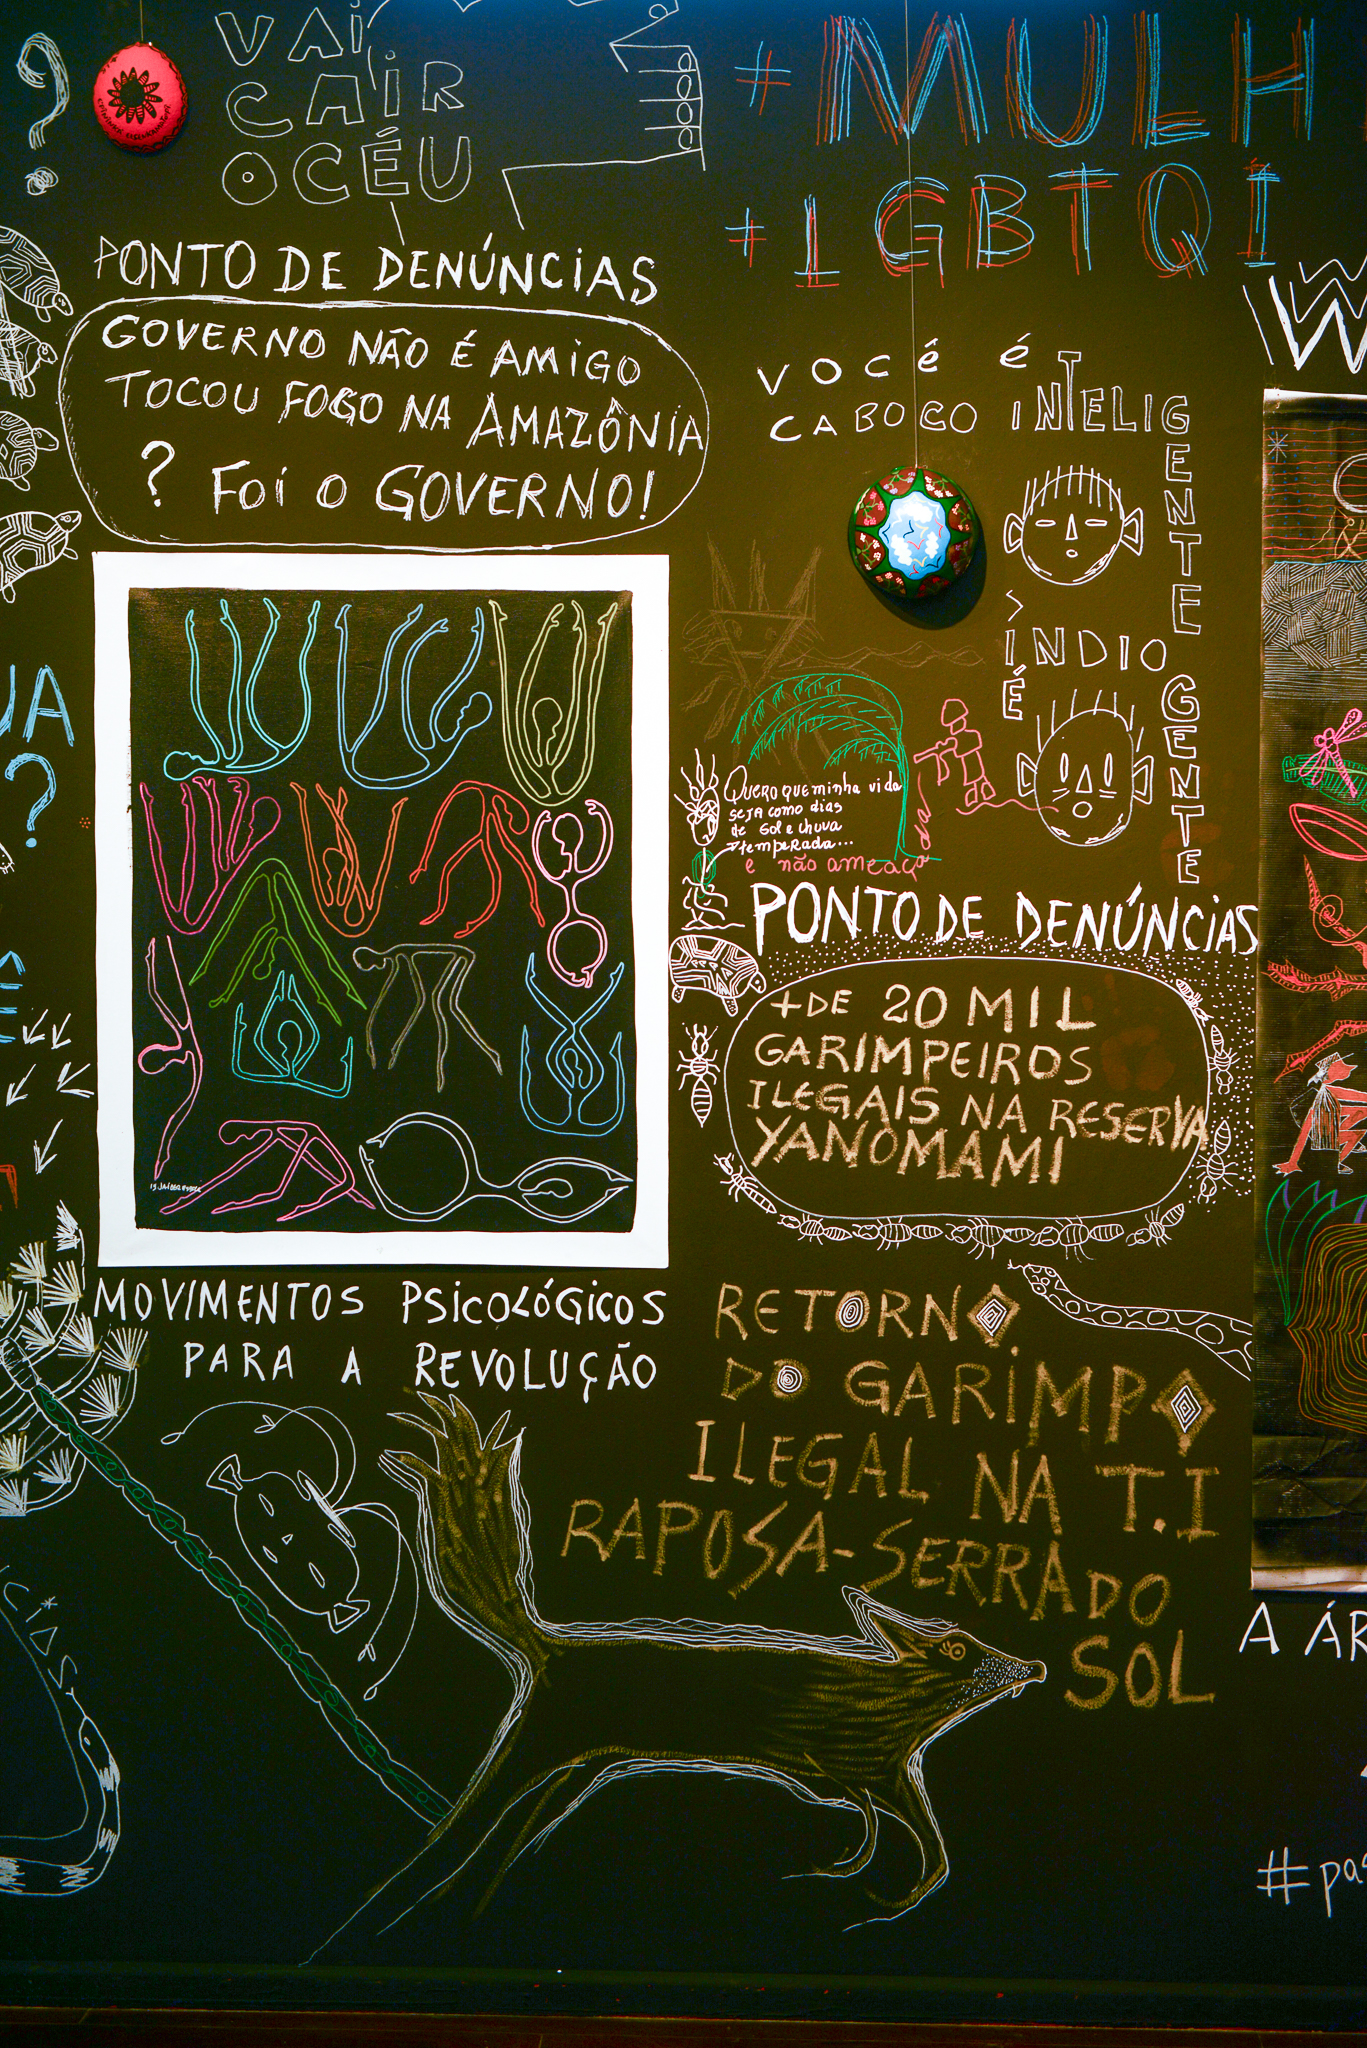 ?
VAi
CAiR
OCÉU
+MULH
+LGBTQI
PONTO DE DENÚNCiAS
GOVERNO NÃO É AMiGO
TOCOU FOGO NA AMAZÔNiA
? Foi O GOVERNO!
VOCÊ É
CABOCO INTELIGENTE
>
ÍNDIO
É GENTE
UA
?
QUERO QUE minha vida
SEJA como dias
de Sol e chuva
temperada...
e não ameaçada
PONTO DE DENÚNCiAS
+DE 20 MIL
GARIMPEIROS
ILEGAIS NA RESERVA
YANOMAMI
MOVIMENTOS PSiCOLÓGiCOS
PARA A REVOLUÇÃO
RETORNO
DO GARiMPO
ILEGAL NA T.I
RAPOSA-SERRA DO
SOL
A ÁR
#pas